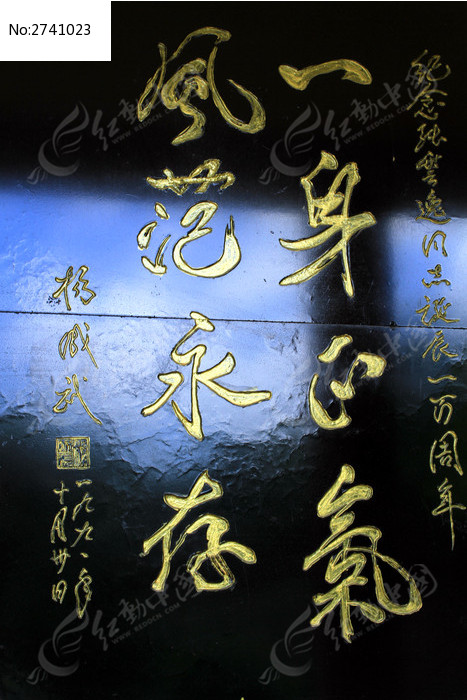 No:2741023
纪念张云逸同志诞辰一百周年
一身正氣
風范永存
杨成武
一九九一年
十月廿日
红動中国
WWW.REDOCN.COM